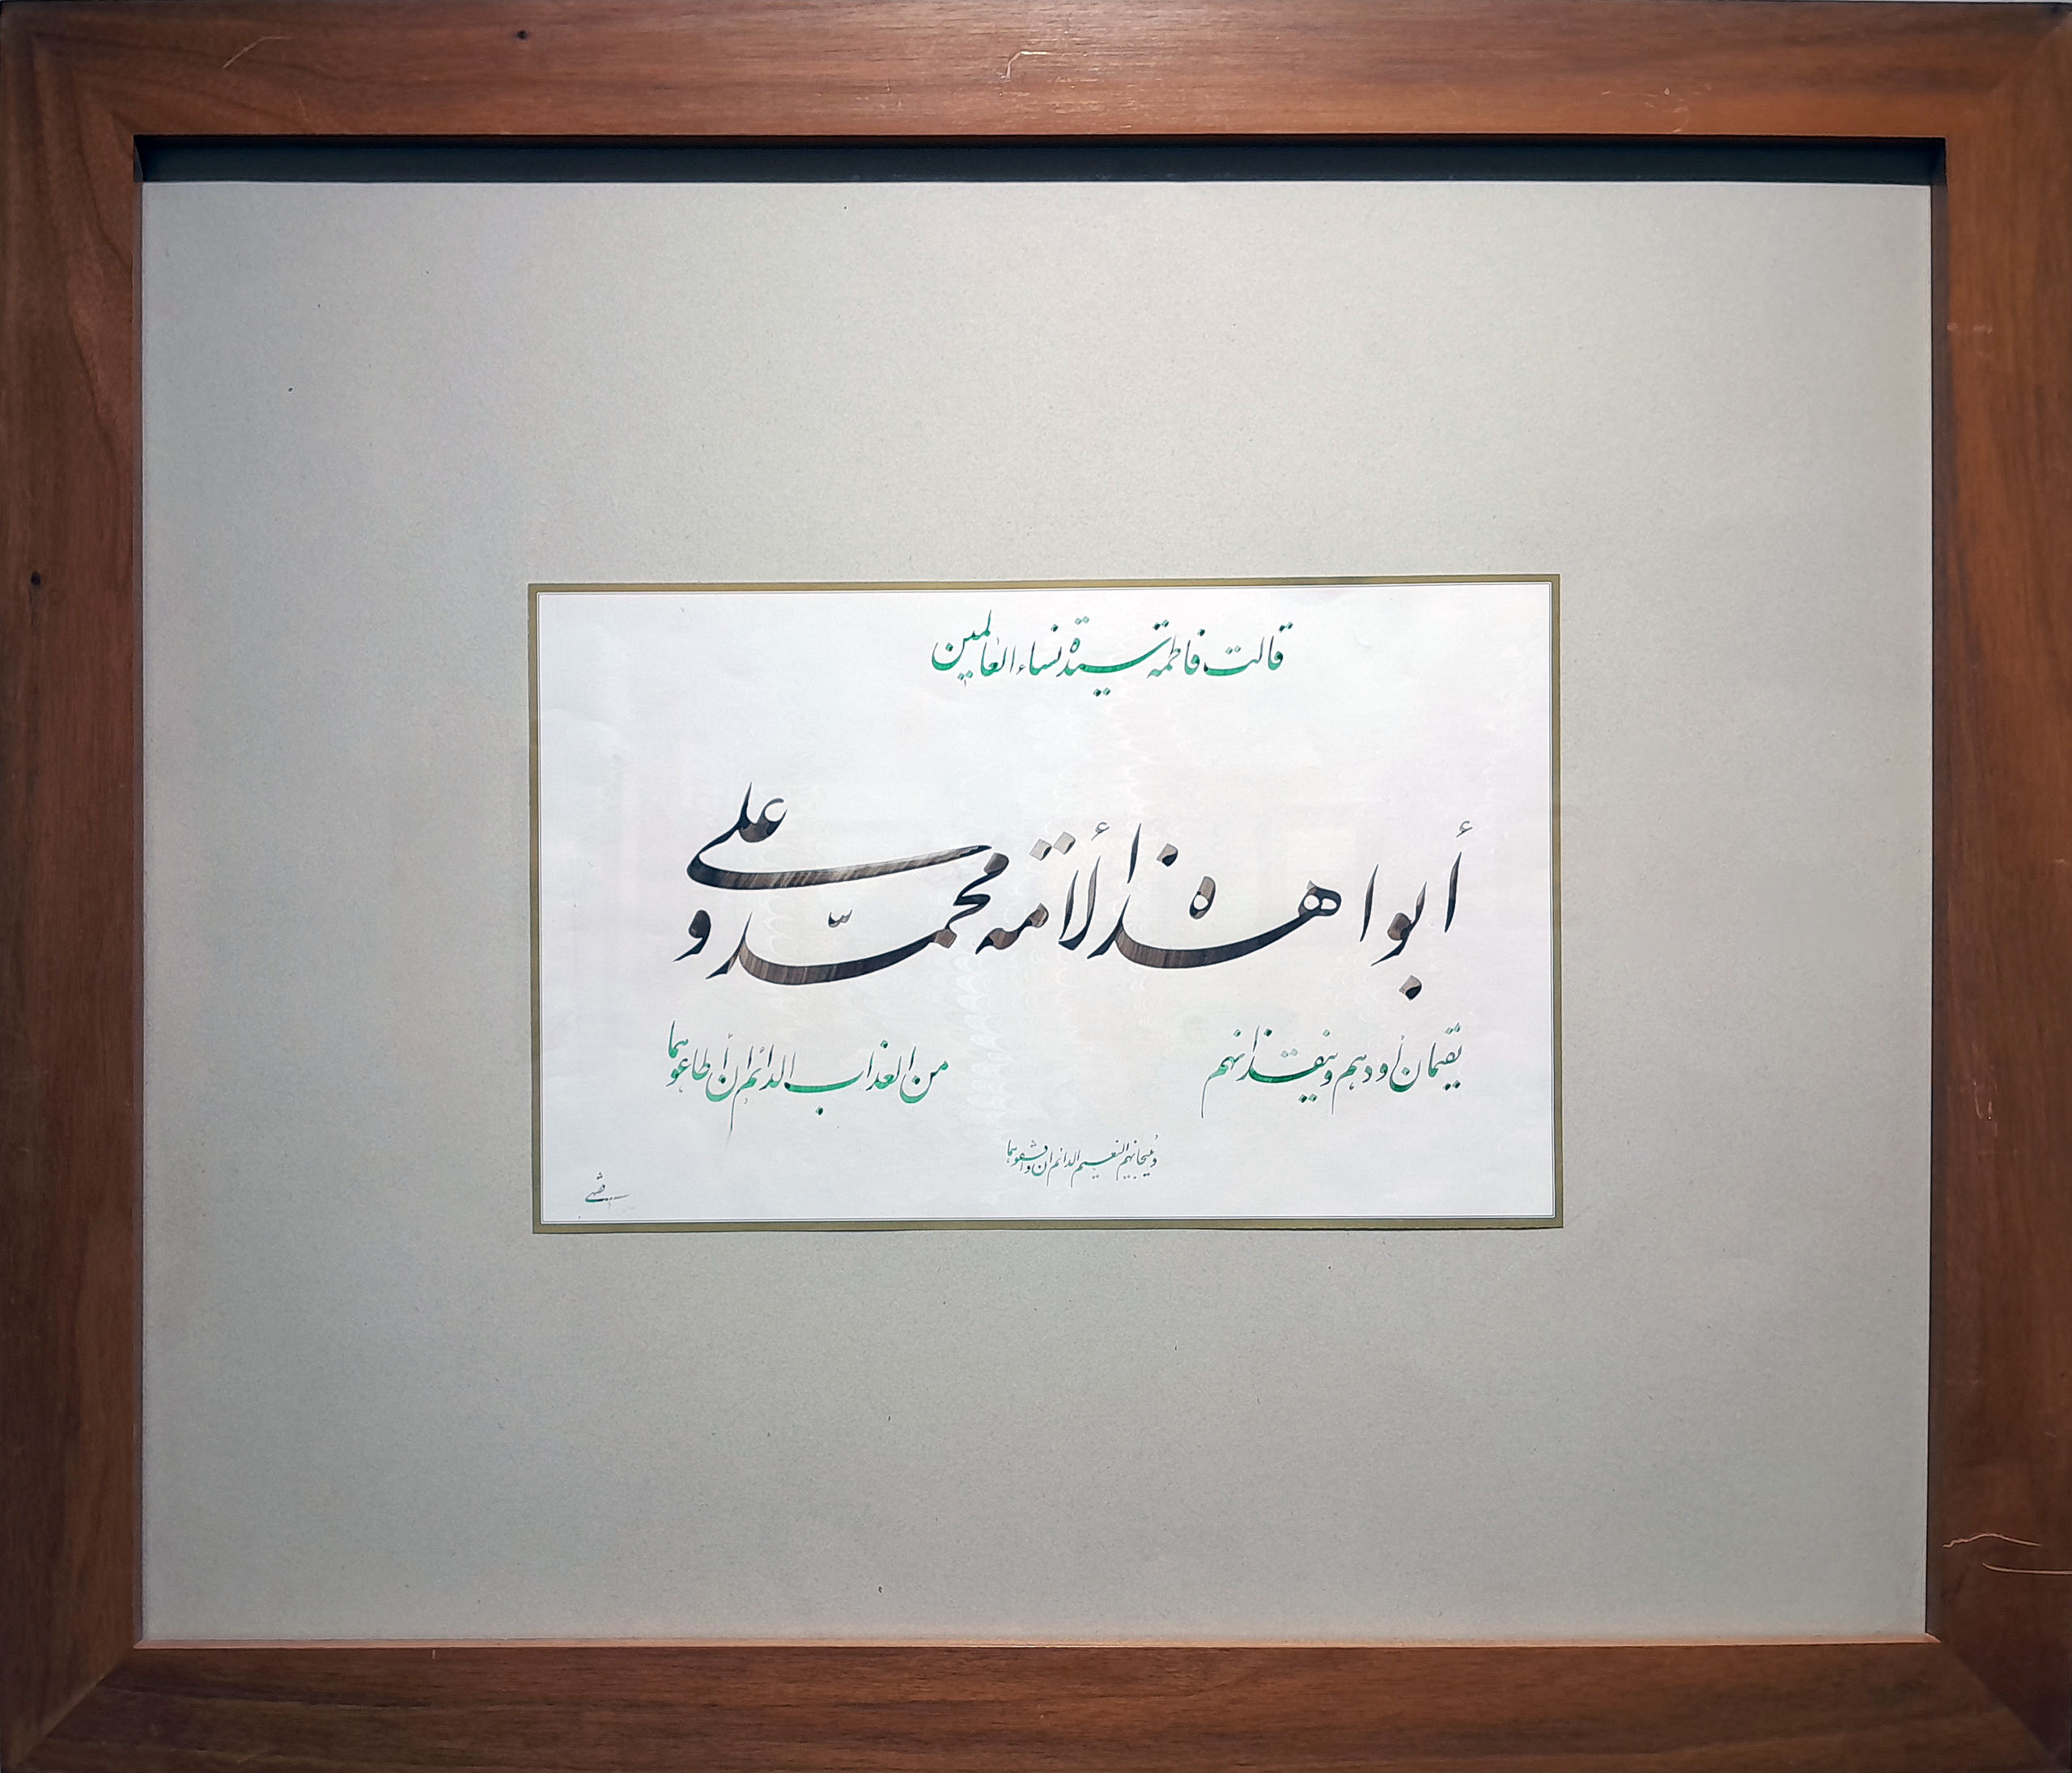 قالت فاطمة سیدة نساء العالمین
أبوا هذه الأمة محمّد و علی
یقیمان أودهم و ینقذانهم من العذاب الدائم إن أطاعوهما
و یبیحانهم النعیم الدائم إن وافقوهما